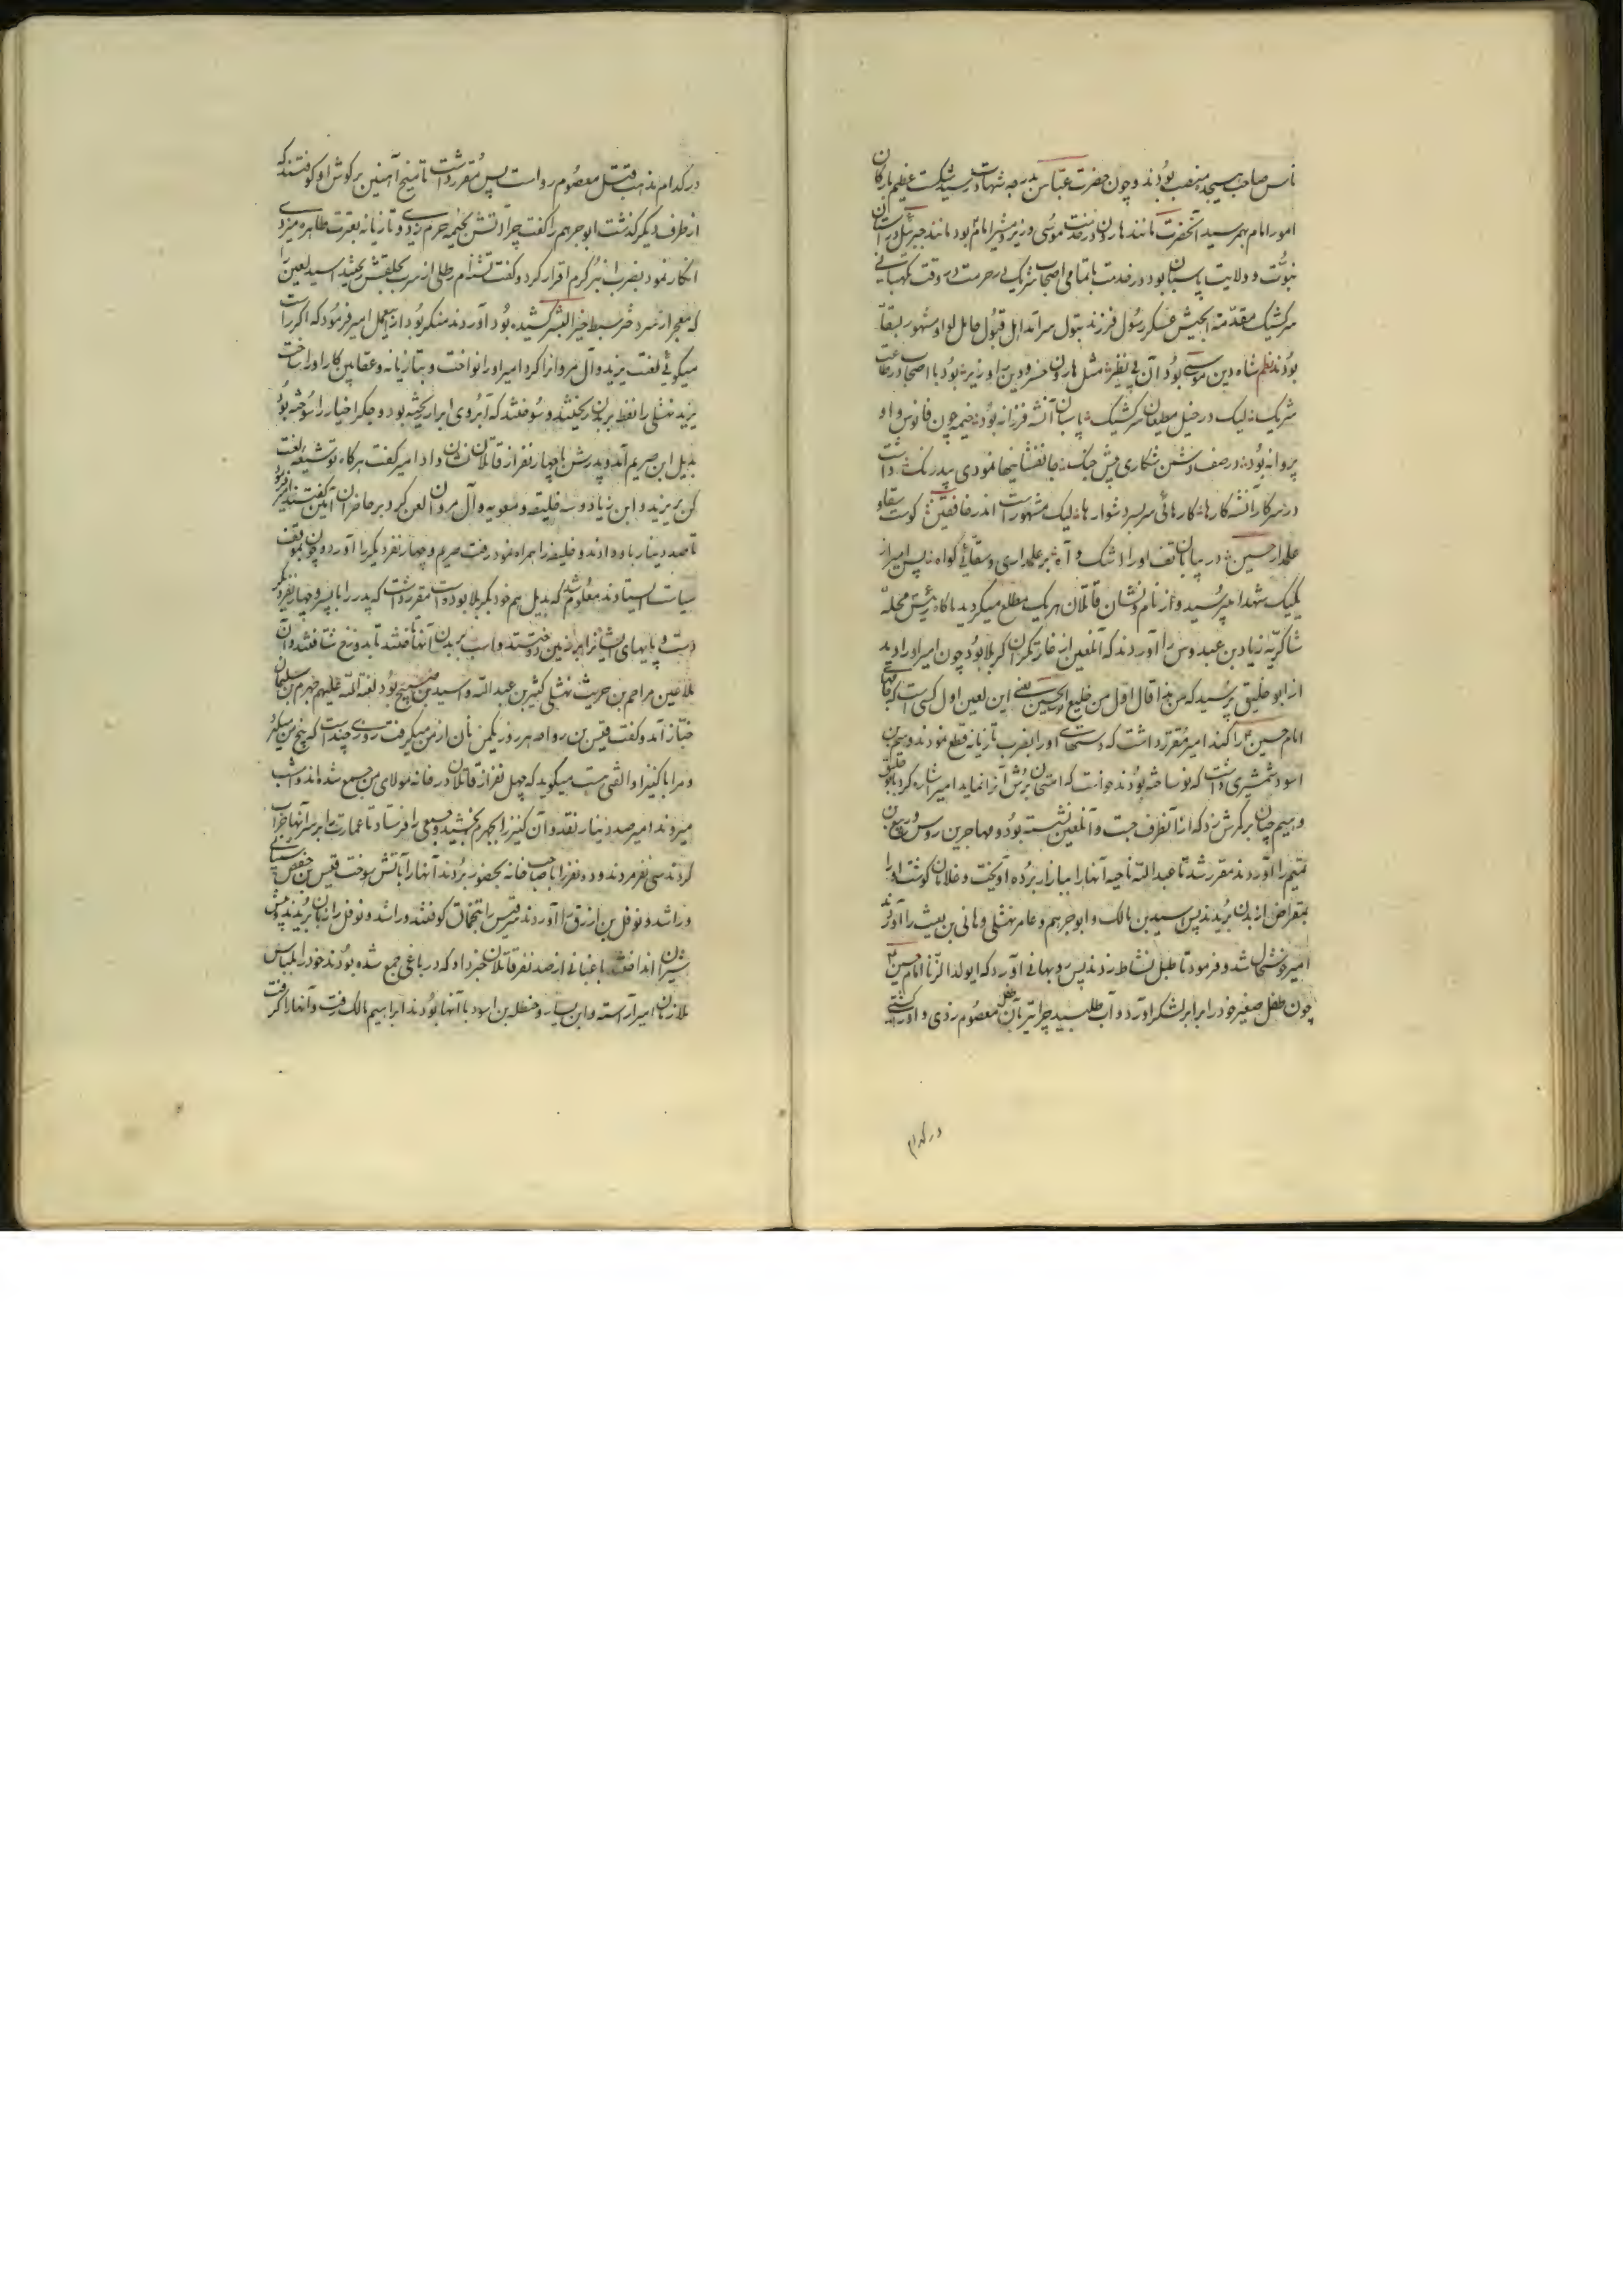 ناس صاحب پنجه منصب بودند و چون حضرت عباس بدرجه شهادت رسید شکست عظیم بارکان
امور امام بهم رسید آنحضرت مانند هارون در خدمت موسی وزیر و مشیر امام بود مانند جبرئیل در آستان
نبوت و ولایت پاسبان بود در خدمت با تمامی اصحاب شریک در حرمت وقت نگهبانی
سرکشیک مقدمة الجیش عسکر رسول فرزند بتول سرآمد اهل قبول حامل لوا و مشهور بسقا
بودند نظم شاه دین موسی بود آن بی نظیر مثل هارون خسرو دین را وزیر بود با اصحاب در طاعت
شریک لیک در خیل مطیعان سرکشیک پاسبان آنشه فرزانه بود خیمه چون فانوس و او
پروانه بود در صف دشمن شکاری پیش جنگ جانفشانیها نمودی بیدرنگ داشت
در سرکار آنشه کارها کارهائی سربسر دشوارها لیک مشهور است اندر خافقین کوست سقا و
علمدار حسین در بیابان تف او را اشک و آه بر علمداری و سقائی گواه پس امیر از
یکیک شهدا میپرسید و از نام و نشان قاتلان هریک مطلع میکردید ناکاه رئیس محله
شاکریه زیاد بن عبدوس را آوردند که آنلعین از غارتکران کربلا بود چون امیر او را دید
از ابو خلیق پرسید که من هذا قال اول من خلع الحسین یعنی این لعین اول کسی است که جامهای
امام حسین را کند امیر مقرر داشت که دستهای او را بضرب تازیانه قطع نمودند و سیم بن
اسود شمشیری داشت که نو ساخته بودند خواست که امتحان برش آنرا نماید امیر اشاره کرد بابو خلیق
و سیم چنان بر کمرش زد که از آنطرف جست و آنلعین نشسته بود و مهاجر بن روس و ربیع بن
تمیم را آوردند مقرر شد تا عبدالله ناجیه آنها را ببازار برده آویخت و غلامان کوشت او را
بمقراض از بدن بریدند پس سید بن مالک و ابو جرهم و عامر نهشلی و هانی بن بعیث را آوردند
امیر خوشحال شد و فرمود تا طبل نشاط زدند پس رو بهانی آورد که ایولد الزنا امام حسین
چون طفل صغیر خود را برابر لشکر آورد و آب طلبید چرا تیر بآن طفل معصوم زدی و او را کشتی
در کدام
در کدام مذهب قتل معصوم رواست پس مقرر داشت تا میخ آهنین بر کوش او کوفتند که
از طرف دیکر کذشت ابو جرهم را کفت چرا آتش بخیمه حرم زدی و تازیانه بعترت طاهره میزدی
انکار نمود بضرب انبر کرم اقرار کرد و کفت تشنه ام رطلی از سرب بحلقش ریختند اسید لعین را
که معجر از سر دختر سبط خیر البشر کشیده بود آوردند منکر بود از آن عمل امیر فرمود که اکر راست
میکوئی لعنت یزید و آل مروان را کرد امیر او را نواخت و بتازیانه و عقابین کار او را ساخت
یزید نهشلی را نفط بر بدن ریختند و سوختند که آبروی ابرار ریخته بود و جکر اخیار را سوخته بود
بدیل ابن صریم آمد و پدرش با چهار نفر از قاتلان نشان داد امیر کفت هرکاه تو شیعه لعنت
کن بر یزید و ابن زیاد و بـ خلیفه و معویه و آل مروان لعن کرد بر حاضران آمین کفتند امیر فرمود
تا صد دینار باو دادند و خلیفه را همراه نمود رفت صریم و چهار نفر دیکر را آورد و چون بموقف
سیاست ایستادند معلوم شد که بدیل هم خود بکربلا بوده است مقرر داشت که پدر را با پسر و چهار نفر دیکر
دست و پایهای ایشانرا بر زمین دوختند و اسب بر بدن آنها تاختند تا بدوزخ شتافتند و آن
ملاعین مزاحم بن حریث نهشلی کثیر بن عبد الله و اسید بن صبیح بود لعنة الله علیهم جهرم بن سلیمان
خباز آمد و کفت قیس بن رواحه هر روز یکمن نان از من میکرفت روزی چند است که پنج من میکیرد
و مرا با کنیز او الفتی هست میکوید که چهل نفر از قاتلان در خانه مولای من جمع شده اند و امشب
میروند امیر صد دینار نقد و آن کنیز را بجهرم بخشید و جمعی را فرستاد تا عمارت را بر سر آنها خراب
کردند سی نفر مردند و ده نفر را با صاحب خانه بحضور بردند آنها را بآتش سوخت قیس بن حفص شیبانی
و راشد و نوفل بن ازرق را آوردند قیس را تخماق کوفتند و راشد و نوفل را زبان بریدند پیش
شیران انداختند باغبانی از صد نفر قاتلان خبر داد که در باغی جمع شده بودند خود را بلباس
ملازمان امیر آراسته و ابن یسار و حنظله بن اسود با آنها بودند ابراهیم مالک رفت و آنها را کرفت